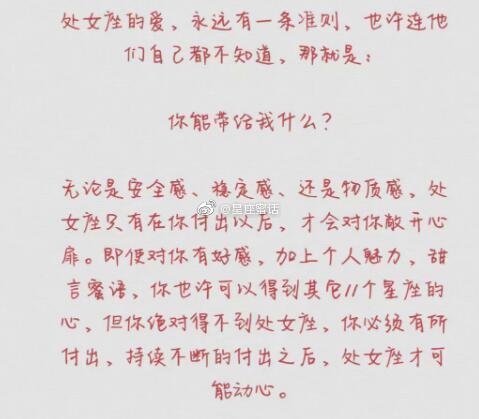 处女座的爱，永远有一条准则，也许连他
们自己都不知道，那就是：
你能带给我什么？
无论是安全感、稳定感、还是物质感，处
女座只有在你付出以后，才会对你敞开心
扉。即便对你有好感，加上个人魅力，甜
言蜜语，你也许可以得到其它11个星座的
心，但你绝对得不到处女座，你必须有所
付出，持续不断的付出之后，处女座才可
能动心。
@星座蜜话